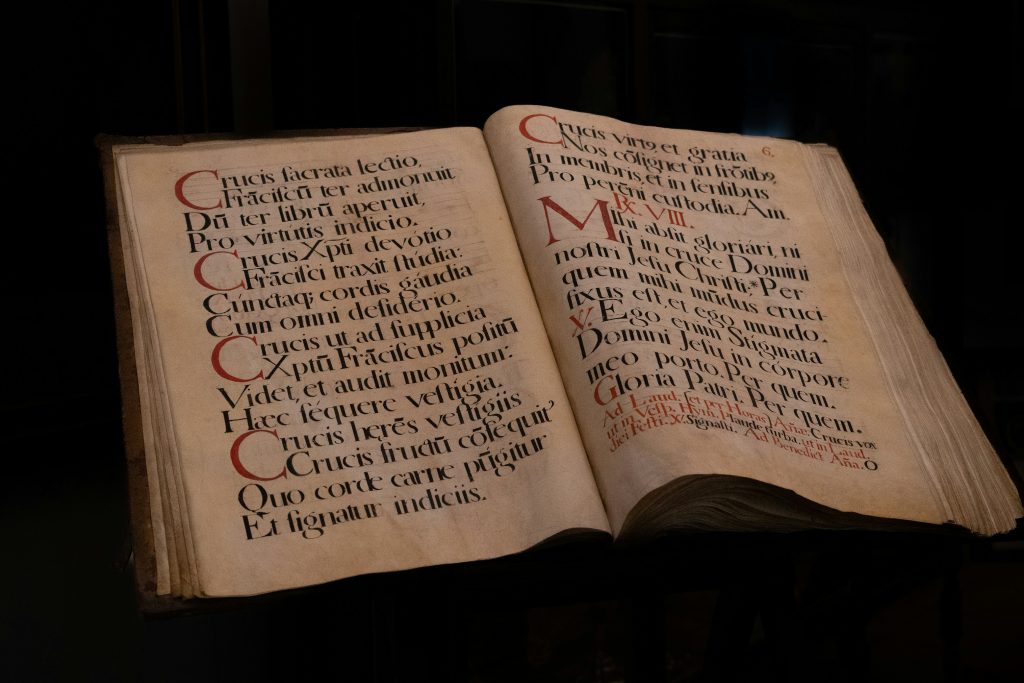 Crucis ſacrata lectio,
Frãciſcũ ter admonuit
Dũ ter librũ aperuit,
Pro virtutis indicio.
Crucis Xp̃ti devotio
Frãciſci traxit ſtudia:
Cũnctaq; cordis gaudia
Cum omni deſiderio.
Crucis ut ad ſupplicia
Xp̃tũ Frãciſcus poſitũ
Videt, et audit monitum:
Hæc ſéquere veſtigia.
Crucis herẽs veſtigiis
Crucis fructũ cõſequit
Quo corde carne pũgitur
Et ſignatur indiciis.
6.
Crucis virtꝰ et gratia
Nos cõſignet in frõtibꝰ,
In membris, et in ſenſibus
Pro perẽni cuſtodia. Am.
R. VIII.
Mihi abſit gloriári, ni
ſi in cruce Domini
noſtri Jeſu Chriſti; *Per
quem mihi mũdus cruci-
fixus eſt, et ego mundo.
℣. Ego enim Stigmata
Domini Jeſu in córpore
meo porto. Per quem.
Gloria Patri. Per quem.
Ad Laud. et per Horas Añæ. Crucis vox
ut in Veſp. Hym. Plaude turba. ut in Laud.
diei Feſti. ℣. Signaſti. Ad Benedict Aña. O